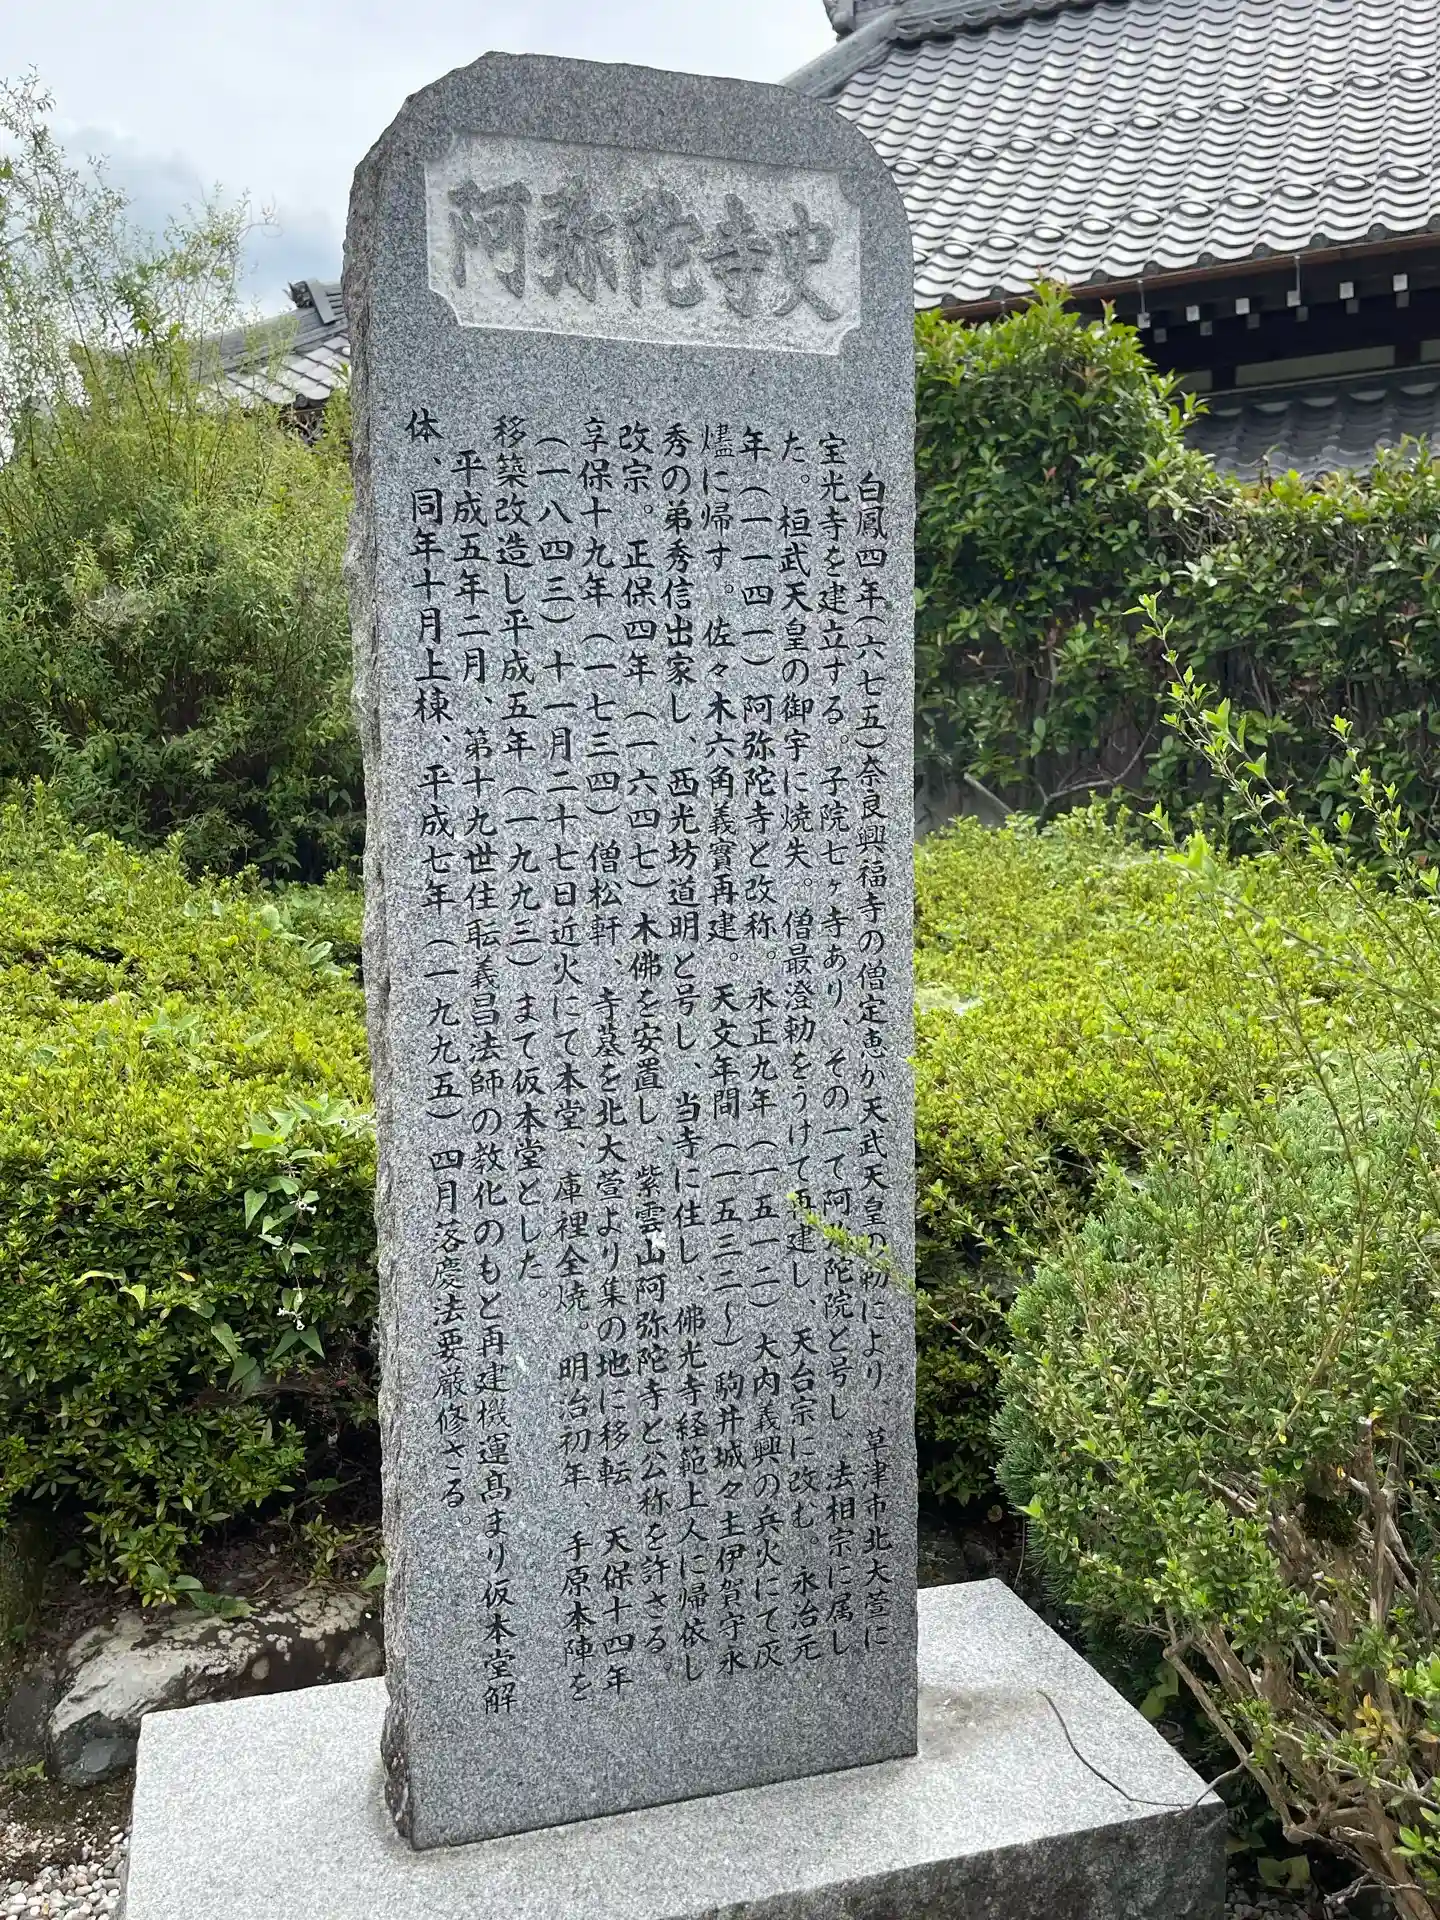 阿弥陀寺史
白鳳四年(六七五)奈良興福寺の僧定恵か天武天皇の勅により、草津市北大萱に
宝光寺を建立する。子院七ヶ寺あり、その一て阿弥陀院と号し、法相宗に属し
た。桓武天皇の御宇に焼失。僧最澄勅をうけて再建し、天台宗に改む。永治元
年(一一四一)阿弥陀寺と改称。永正九年(一五一二)大内義興の兵火にて灰
燼に帰す。佐々木六角義實再建。天文年間(一五三二〜)駒井城々主伊賀守永
秀の弟秀信出家し、西光坊道明と号し、当寺に住し、佛光寺経範上人に帰依し
改宗。正保四年(一六四七)木佛を安置し、紫雲山阿弥陀寺と公称を許さる。
享保十九年(一七三四)僧松軒、寺基を北大萱より集の地に移転。天保十四年
(一八四三)十一月二十七日近火にて本堂、庫裡全焼。明治初年、手原本陣を
移築改造し平成五年(一九九三)まて仮本堂とした。
平成五年二月、第十九世住転義昌法師の教化のもと再建機運髙まり仮本堂解
体、同年十月上棟、平成七年(一九九五)四月落慶法要厳修さる。